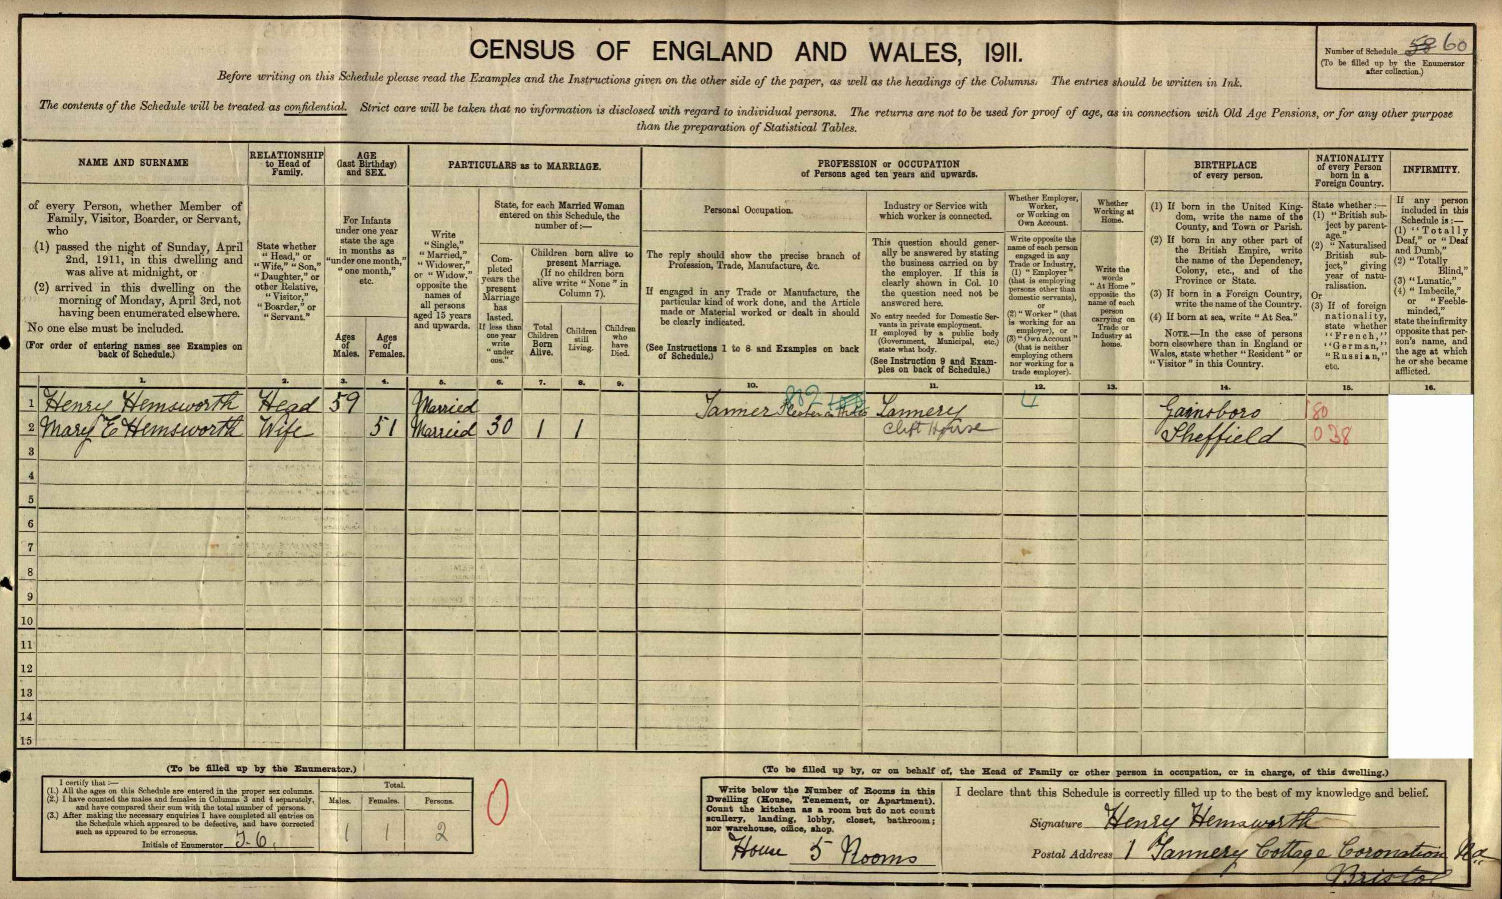 CENSUS OF ENGLAND AND WALES, 1911.
Number of Schedule 58 60
(To be filled up by the Enumerator
after collection.)
Before writing on this Schedule please read the Examples and the Instructions given on the other side of the paper, as well as the headings of the Columns. The entries should be written in Ink.
The contents of the Schedule will be treated as confidential. Strict care will be taken that no information is disclosed with regard to individual persons. The returns are not to be used for proof of age, as in connection with Old Age Pensions, or for any other purpose
than the preparation of Statistical Tables.
NAME AND SURNAME
of every Person, whether Member of
Family, Visitor, Boarder, or Servant,
who
(1) passed the night of Sunday, April
2nd, 1911, in this dwelling and
was alive at midnight, or
(2) arrived in this dwelling on the
morning of Monday, April 3rd, not
having been enumerated elsewhere.
No one else must be included.
(For order of entering names see Examples on
back of Schedule.)
RELATIONSHIP
to Head of
Family.
State whether
"Head," or
"Wife," "Son,"
"Daughter," or
other Relative,
"Visitor,"
"Boarder," or
"Servant."
AGE
(last Birthday)
and SEX.
For Infants
under one year
state the age
in months as
"under one month,"
"one month,"
etc.
Ages
of
Males.
Ages
of
Females.
PARTICULARS as to MARRIAGE.
Write
"Single,"
"Married,"
"Widower,"
or "Widow,"
opposite the
names of
all persons
aged 15 years
and upwards.
State, for each Married Woman
entered on this Schedule, the
number of:—
Completed
years the
present
Marriage
has
lasted.
If less than
one year
write
"under
one."
Children born alive to
present Marriage.
(If no children born
alive write "None" in
Column 7).
Total
Children
Born
Alive.
Children
still
Living.
Children
who
have
Died.
PROFESSION or OCCUPATION
of Persons aged ten years and upwards.
Personal Occupation.
The reply should show the precise branch of
Profession, Trade, Manufacture, &c.
If engaged in any Trade or Manufacture, the
particular kind of work done, and the Article
made or Material worked or dealt in should
be clearly indicated.
(See Instructions 1 to 8 and Examples on back
of Schedule.)
Industry or Service with
which worker is connected.
This question should gener-
ally be answered by stating
the business carried on by
the employer. If this is
clearly shown in Col. 10
the question need not be
answered here.
No entry needed for Domestic Ser-
vants in private employment.
If employed by a public body
(Government, Municipal, etc.)
state what body.
(See Instruction 9 and Exam-
ples on back of Schedule.)
Whether Employer,
Worker,
or Working on
Own Account.
Write opposite the
name of each person
engaged in any
Trade or Industry,
(1) "Employer"
(that is employing
persons other than
domestic servants),
or
(2) "Worker" (that
is working for an
employer), or
(3) "Own Account"
(that is neither
employing others
nor working for a
trade employer).
Whether
Working at
Home.
Write the
words
"At Home"
opposite the
name of each
person
carrying on
Trade or
Industry at
home.
BIRTHPLACE
of every person.
(1) If born in the United King-
dom, write the name of the
County, and Town or Parish.
(2) If born in any other part of
the British Empire, write
the name of the Dependency,
Colony, etc., and of the
Province or State.
(3) If born in a Foreign Country,
write the name of the Country.
(4) If born at sea, write "At Sea."
NOTE.—In the case of persons
born elsewhere than in England or
Wales, state whether "Resident" or
"Visitor" in this Country.
NATIONALITY
of every Person
born in a
Foreign Country.
State whether:—
(1) "British sub-
ject by parent-
age."
(2) "Naturalised
British sub-
ject," giving
year of natu-
ralisation.
Or
(3) If of foreign
nationality,
state whether
"French,"
"German,"
"Russian,"
etc.
INFIRMITY.
If any person
included in this
Schedule is:—
(1) "Totally
Deaf," or "Deaf
and Dumb,"
(2) "Totally
Blind,"
(3) "Lunatic,"
(4) "Imbecile,"
or "Feeble-
minded,"
state the infirmity
opposite that per-
son's name, and
the age at which
he or she became
afflicted.
1. 2. 3. 4. 5. 6. 7. 8. 9. 10. 11. 12. 13. 14. 15. 16.
1 Henry Hemsworth Head 59 Married Tanner 882 Tannery 4 Gainsboro 180
2 Mary E Hemsworth Wife 51 Married 30 1 1 Clift House Sheffield 038
3
4
5
6
7
8
9
10
11
12
13
14
15
(To be filled up by the Enumerator.)
I certify that:—
(1.) All the ages on this Schedule are entered in the proper sex columns.
(2.) I have counted the males and females in Columns 3 and 4 separately,
and have compared their sum with the total number of persons.
(3.) After making the necessary enquiries I have completed all entries on
the Schedule which appeared to be defective, and have corrected
such as appeared to be erroneous.
Initials of Enumerator
Total.
Males. Females. Persons.
1 1 2
0
(To be filled up by, or on behalf of, the Head of Family or other person in occupation, or in charge, of this dwelling.)
Write below the Number of Rooms in this
Dwelling (House, Tenement, or Apartment).
Count the kitchen as a room but do not count
scullery, landing, lobby, closet, bathroom;
nor warehouse, office, shop.
House 5 Rooms
I declare that this Schedule is correctly filled up to the best of my knowledge and belief.
Signature Henry Hemsworth
Postal Address 1 Tannery Cottage Coronation Rd
Bristol